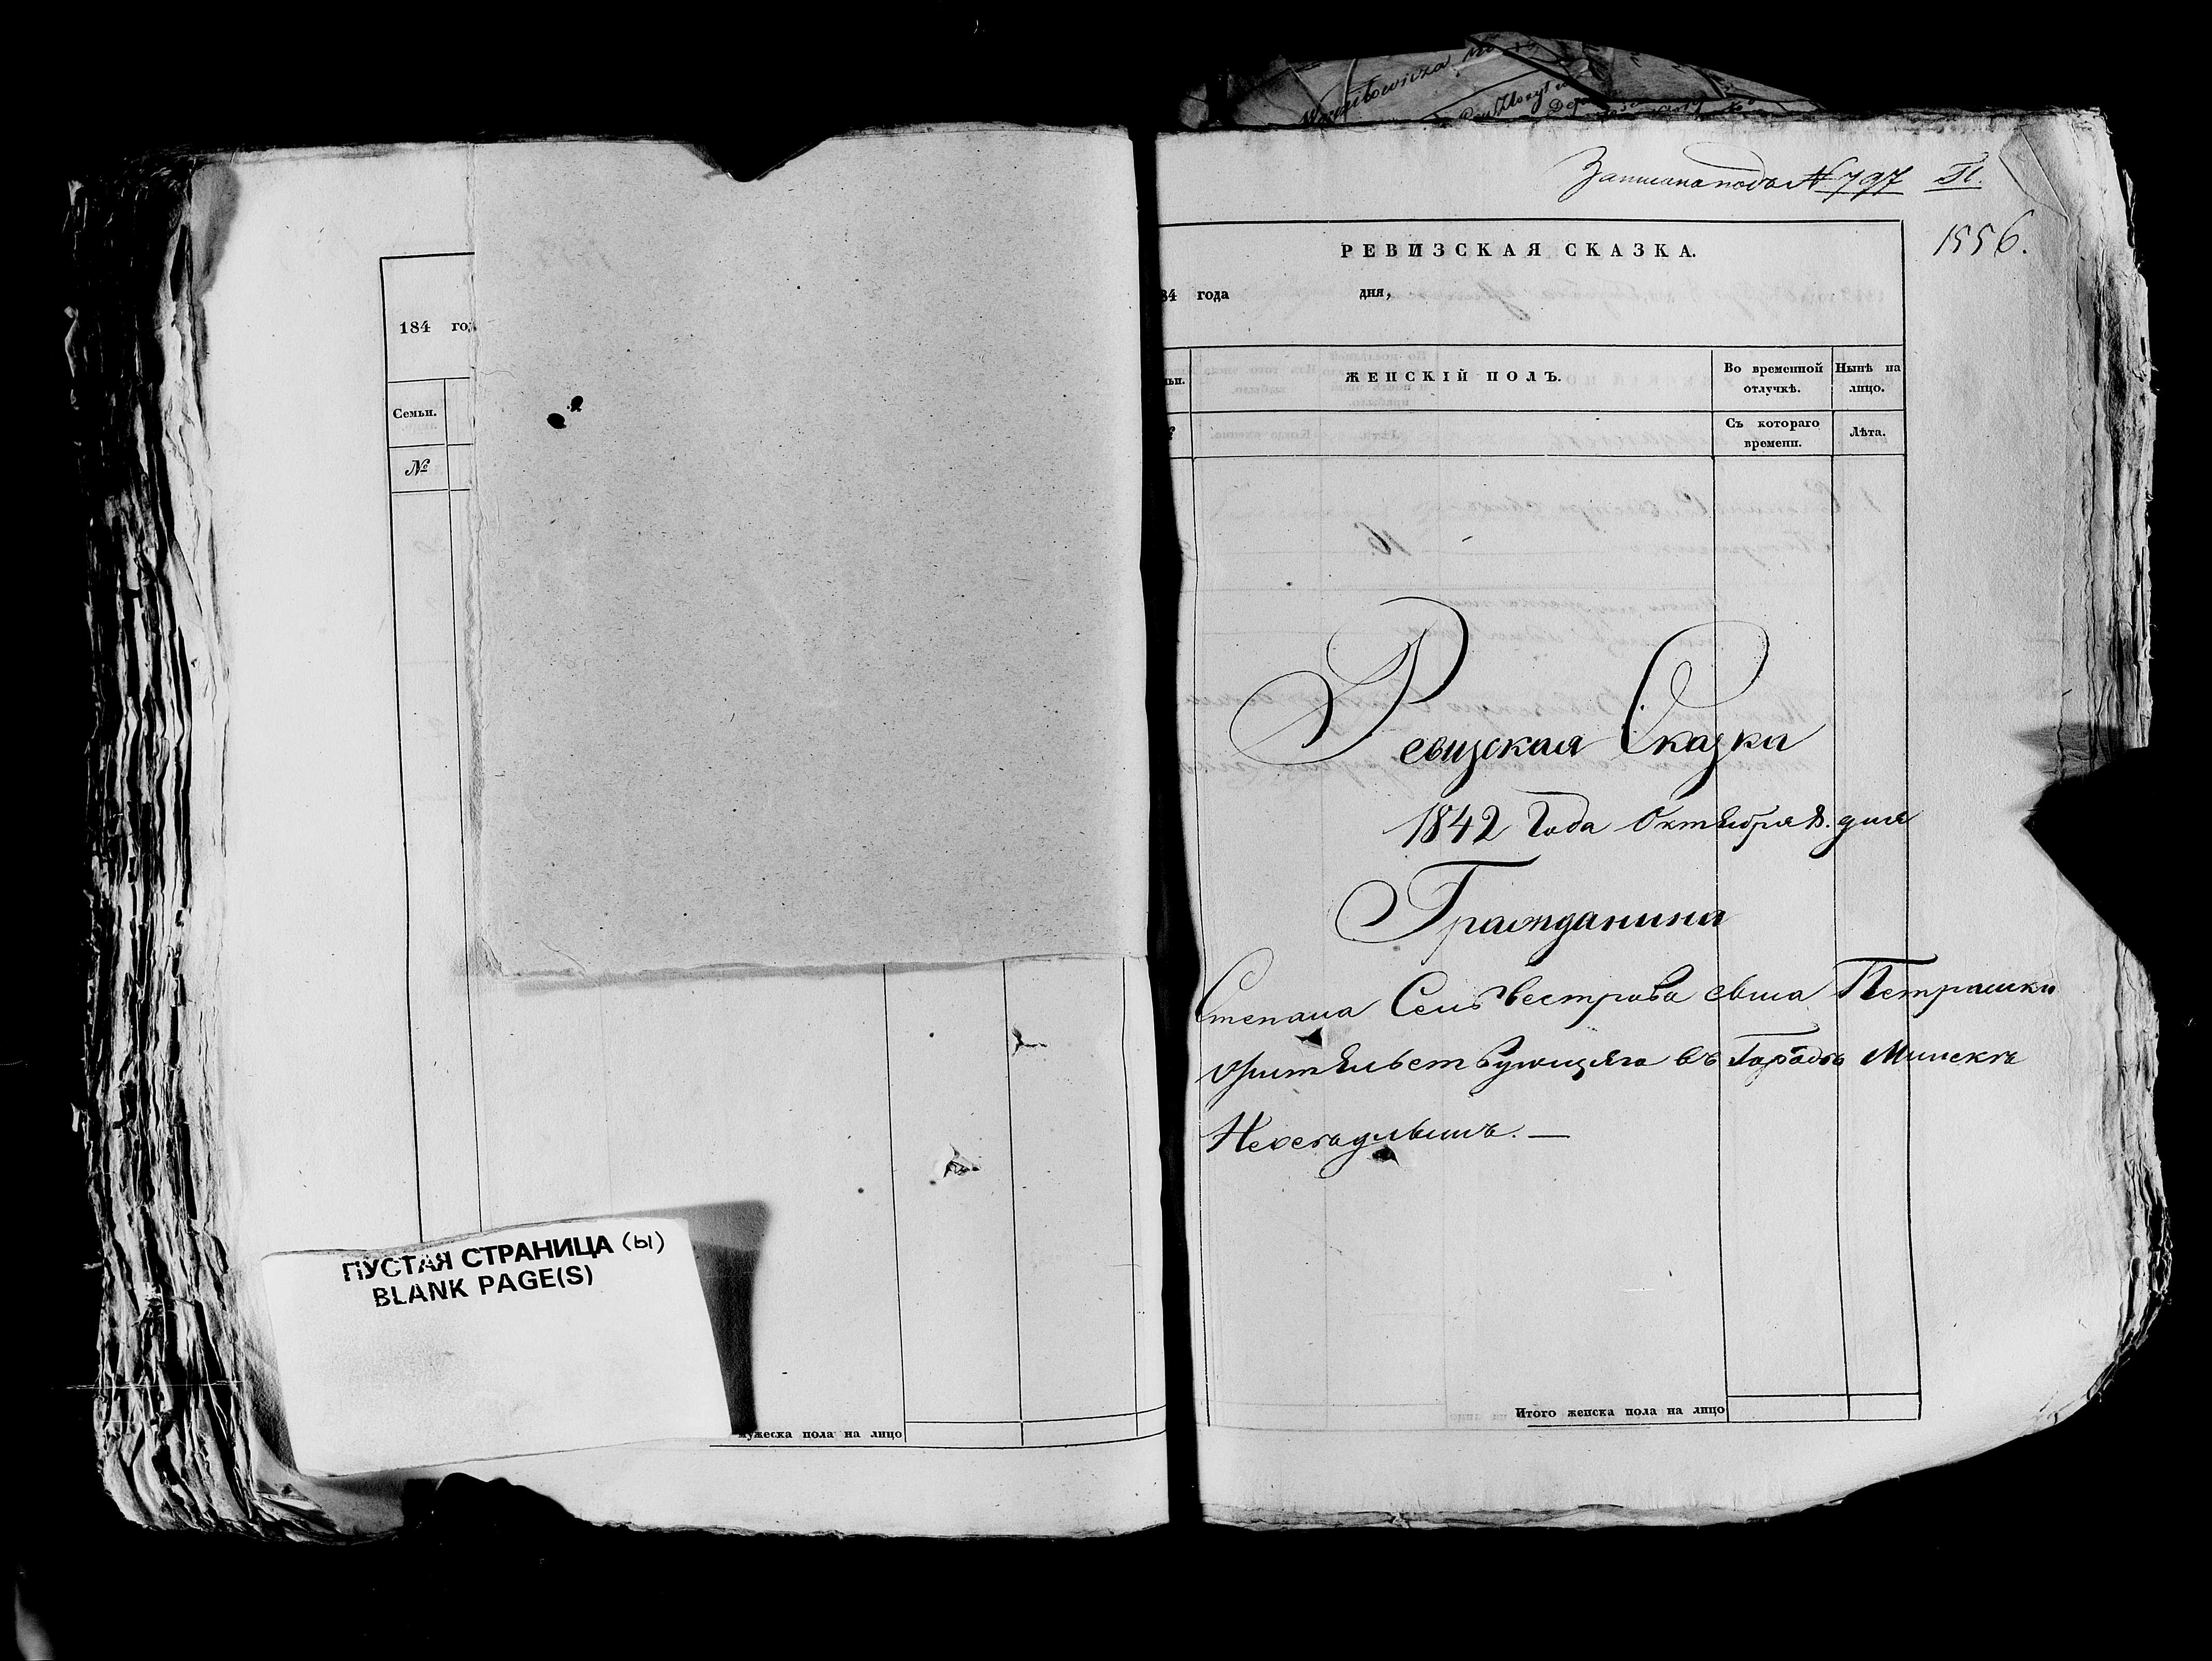 184 го
Семьи.
№
ПУСТАЯ СТРАНИЦА (ы)
BLANK PAGE(S)
мужеска пола на лицо
Записана подъ № 797 П.
1556.
РЕВИЗСКАЯ СКАЗКА.
84 года дня,
ЖЕНСКІЙ ПОЛЪ.
Во временной отлучкѣ.
Нынѣ на лицо.
Съ котораго времени.
Лѣта.
Ревизская Сказка
1842 Года Октября 8. дня
Гражданина
Степана Сельвестрова сына Петрашки
жительствующяго въ Городѣ Минскѣ
Итого женска пола на лицо